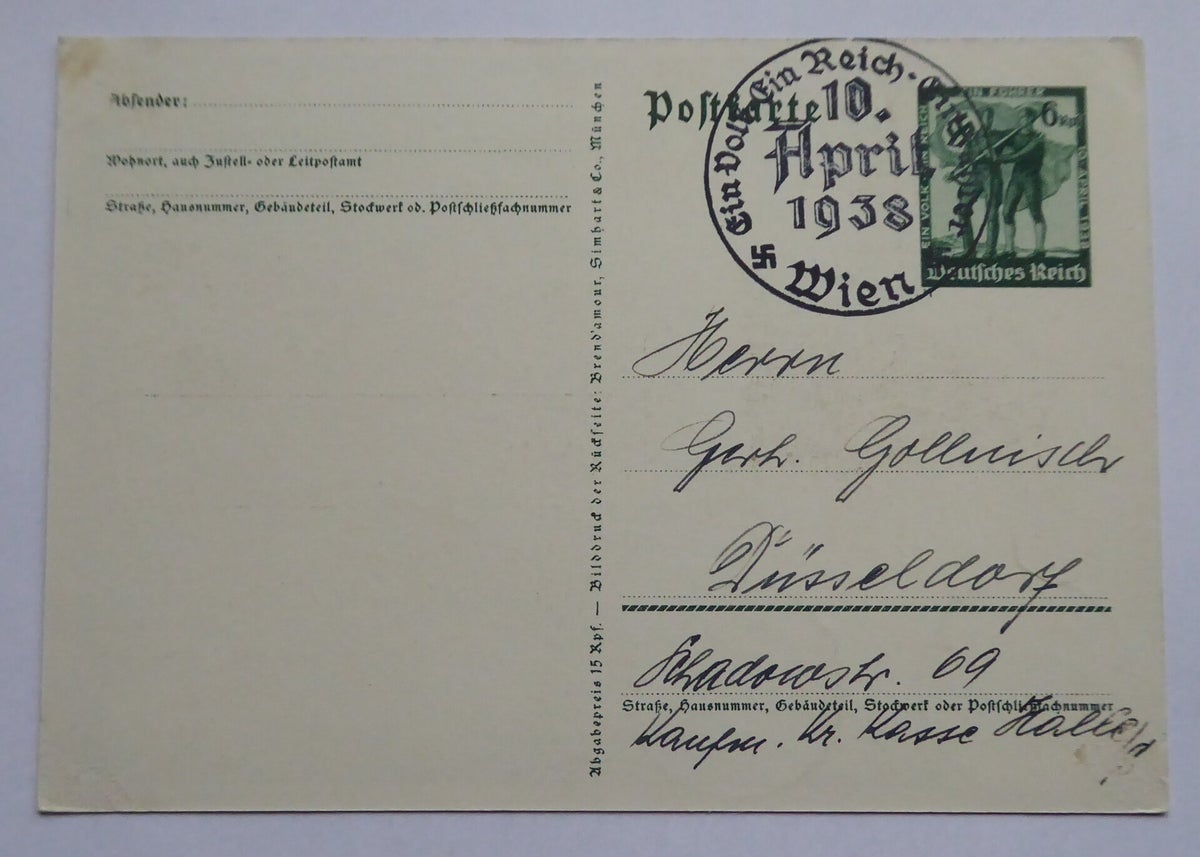 Absender:
Wohnort, auch Zustell- oder Leitpostamt
Straße, Hausnummer, Gebäudeteil, Stockwerk od. Postschließfachnummer
Abgabepreis 15 Rpf. — Bilddruck der Rückseite: Brend'amour, Simhart & Co., München
Postkarte
Ein Volk Ein Reich · Ein Führer
10.
April
1938
Wien
EIN VOLK EIN REICH EIN FÜHRER
10. APRIL 1938
6
Deutsches Reich
Herrn
Gerh. Gollnisch
Düsseldorf
Schadowstr. 69
Straße, Hausnummer, Gebäudeteil, Stockwerk oder Postschließfachnummer
Kaufm. Kr. Kasse